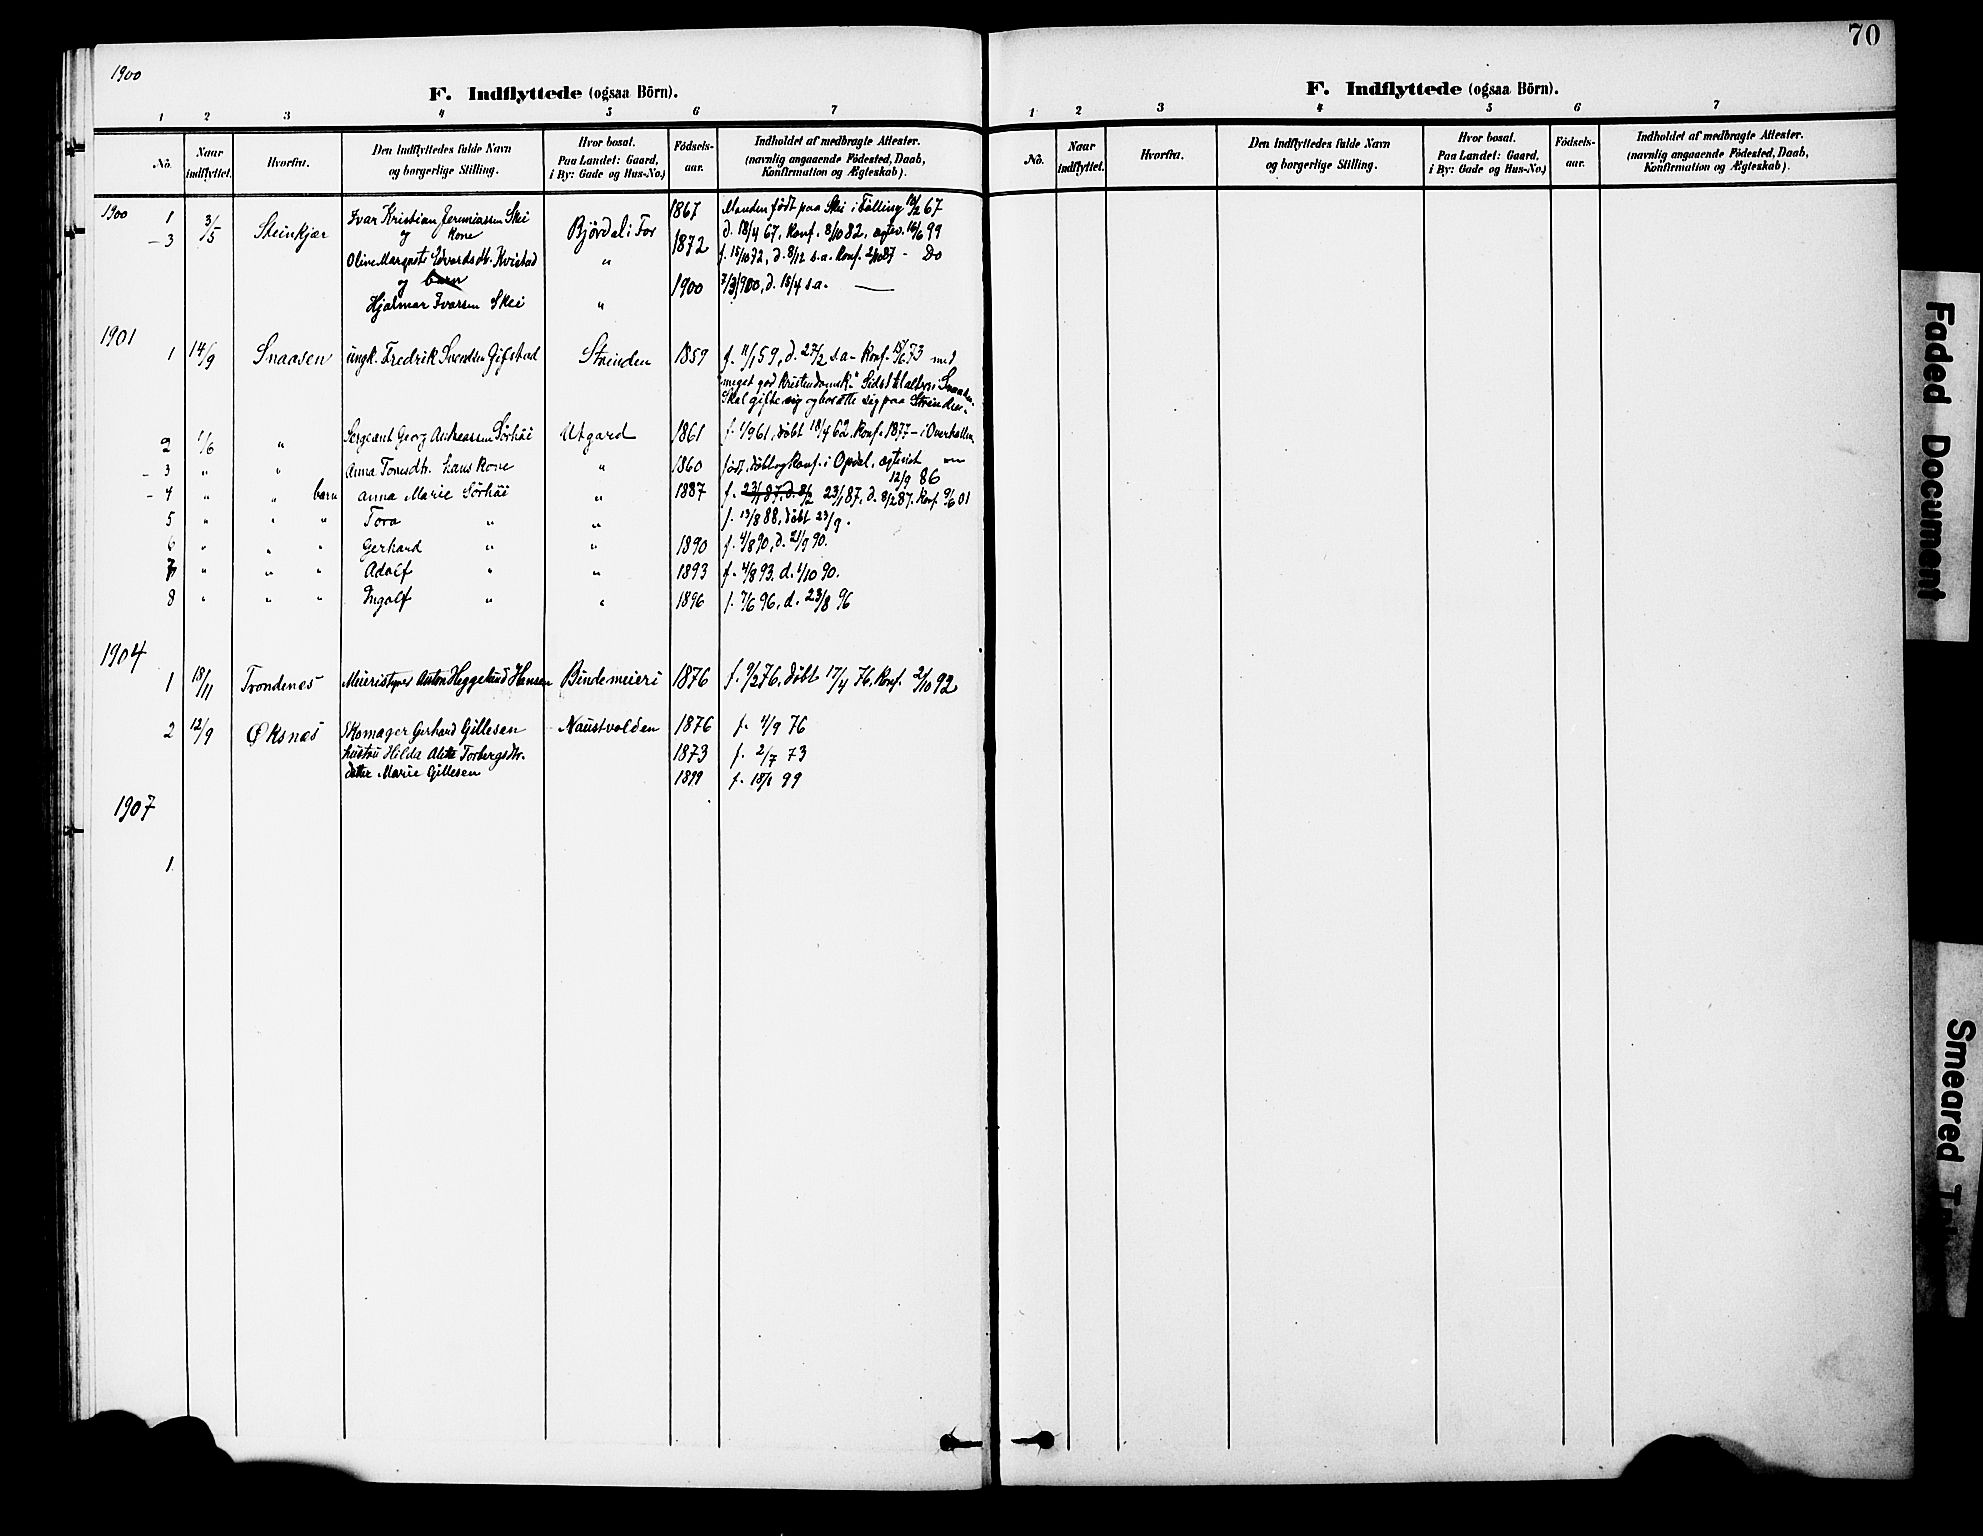 1900
F. Indflyttede (ogsaa Börn).
1 2 3 4 5 6 7
No. Naar indflyttet. Hvorfra. Den Indflyttedes fulde Navn og borgerlige Stilling. Hvor bosat. Paa Landet: Gaard, i By: Gade og Hus-No.) Födsels-aar. Indholdet af medbragte Attester. (navnlig angaaende Födested, Daab, Konfirmation og Ægteskab).
1900 1 3/5 Steinkjær Ivar Kristian Jeremiassen Skei Björdal i For 1867 Manden født paa Skei i Følling 10/2 67
- 3 og kone 1872 d. 18/4 67, Konf. 8/10 82, ægtev. 16/6 99
Oline Margrete Edvardsdt. Kvistad " f. 15/10 72, d. 8/12 s.a. Konf. 2/10 87 - Do
og barn 1900 7/3 1900, d. 15/4 s.a.
Hjalmar Ivarsen Skei "
1901
1 14/9 Snaasen ungk. Fredrik Svendsen Gifstad Strinden 1859 f. 11/1 59, d. 27/2 s.a. Konf. 15/6 73 med
"meget god Kristendomsk." Sidst til alters i Snaasen.
Skal gifte sig og bosætte sig paa Strinden.
2 1/6 " Sergeant Georg Andreassen Sörhöi Utgard 1861 f. 1/9 61, døbt 18/4 62. Konf. 1877 - i Overhallen
- 3 " " Anna Tomsdtr. hans Kone " 1860 født, døbt og konf. i Opdal, ægteviet
12/9 86
- 4 " " barn Anna Marie Sörhöi " 1887 f. 23/1 87, d. 8/2 23/1 87, d. 8/2 87. Konf. 9/6 01
5 " " " Tora " " f. 13/8 88, døbt 23/9.
6 " " " Gerhard " " 1890 f. 4/8 90, d. 21/9 90.
7 " " " Adolf " " 1893 f. 4/8 93. d. 1/10 90.
8 " " " Ingolf " " 1896 f. 7/6 96, d. 23/8 96
1904
1 18/11 Trondenes Meieristyrer Anton Heggelund Hansen Bindemeieri 1876 f. 9/2 76, døbt 17/4 76, Konf. 2/10 92
2 12/9 Øksnes Skomager Gerhard Gillesen Naustvolden 1876 f. 4/9 76
hustru Hilda Alette Torbergsdtr. 1873 f. 2/7 73
datter Marie Gillesen 1899 f. 18/1 99
1907
1
70
F. Indflyttede (ogsaa Börn).
1 2 3 4 5 6 7
No. Naar indflyttet. Hvorfra. Den Indflyttedes fulde Navn og borgerlige Stilling. Hvor bosat. Paa Landet: Gaard, i By: Gade og Hus-No.) Födsels-aar. Indholdet af medbragte Attester. (navnlig angaaende Födested, Daab, Konfirmation og Ægteskab).
Faded Document
Smeared